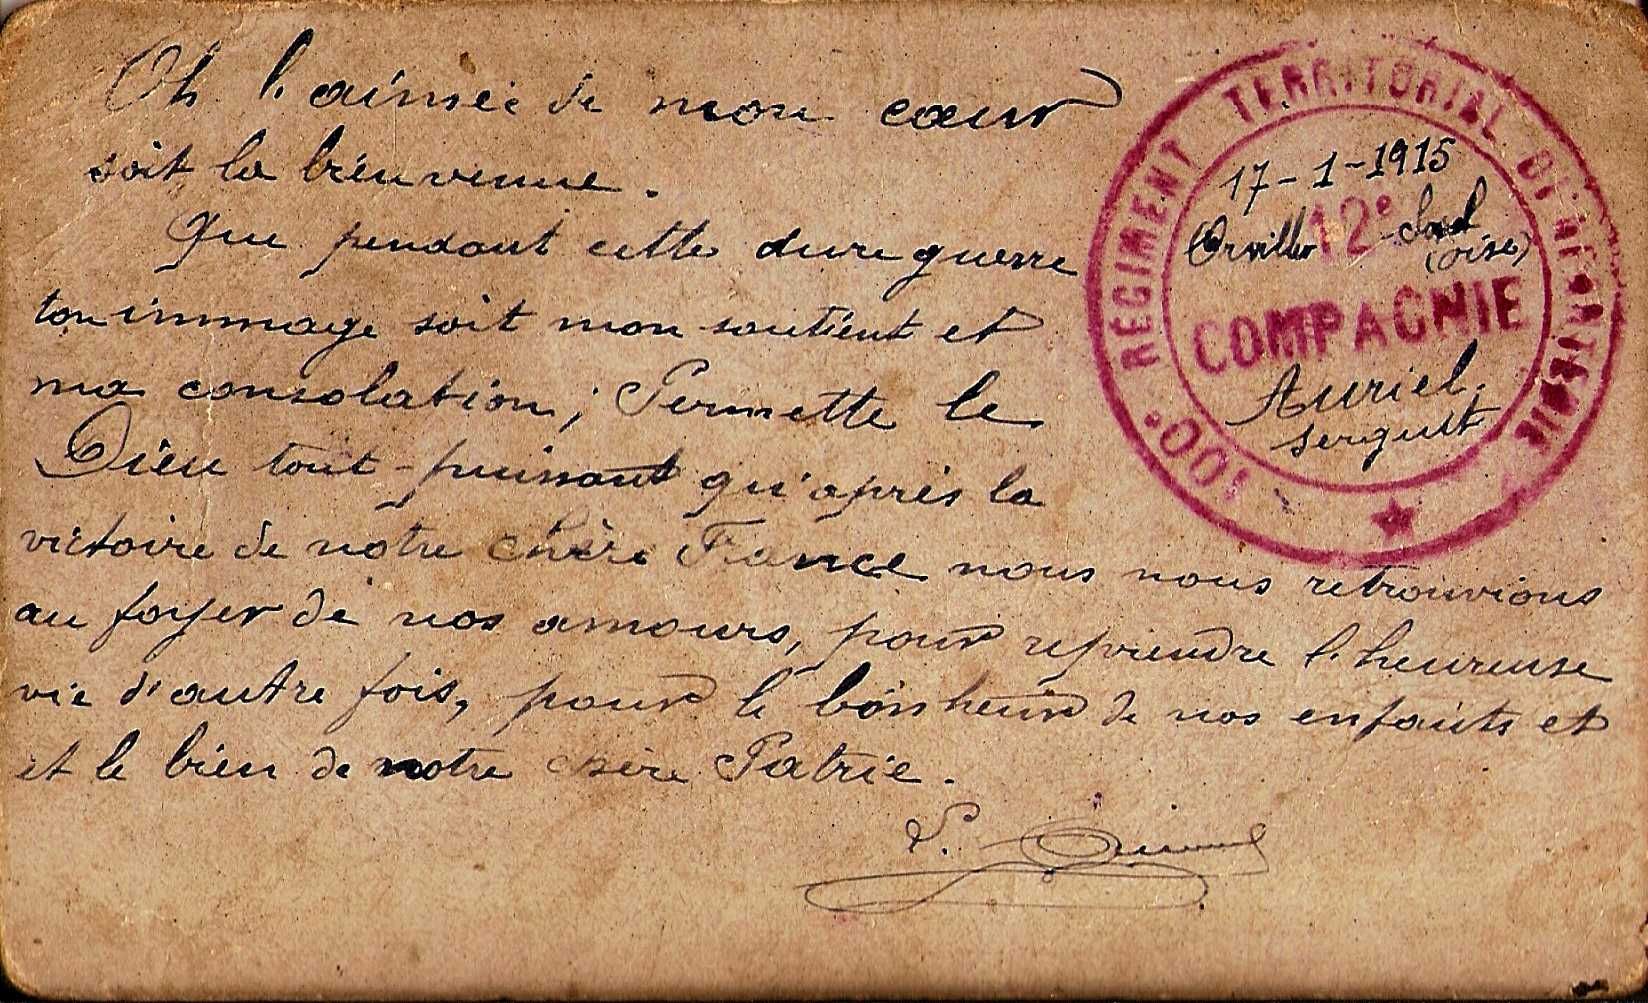 Oh l'aimée de mon cœur
soit la bienvenue.
Que pendant cette dure guerre
ton immage soit mon soutient et
ma consolation; Permette le
Dieu tout-puissant qu'après la
victoire de notre chère France nous nous retrouvions
au foyer de nos amours, pour reprendre l'heureuse
vie d'autre fois, pour le bonheur de nos enfants et
et le bien de notre chère Patrie.
100e RÉGIMENT TERRITORIAL D'INFANTERIE
17-1-1915
12e
Orviller (oise)
COMPAGNIE
Auriel.
sergent